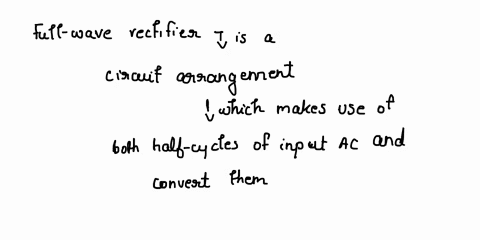 Full-wave rectifier → is a
circuit arrangement
↓ which makes use of
both half-cycles of input AC and
convert them